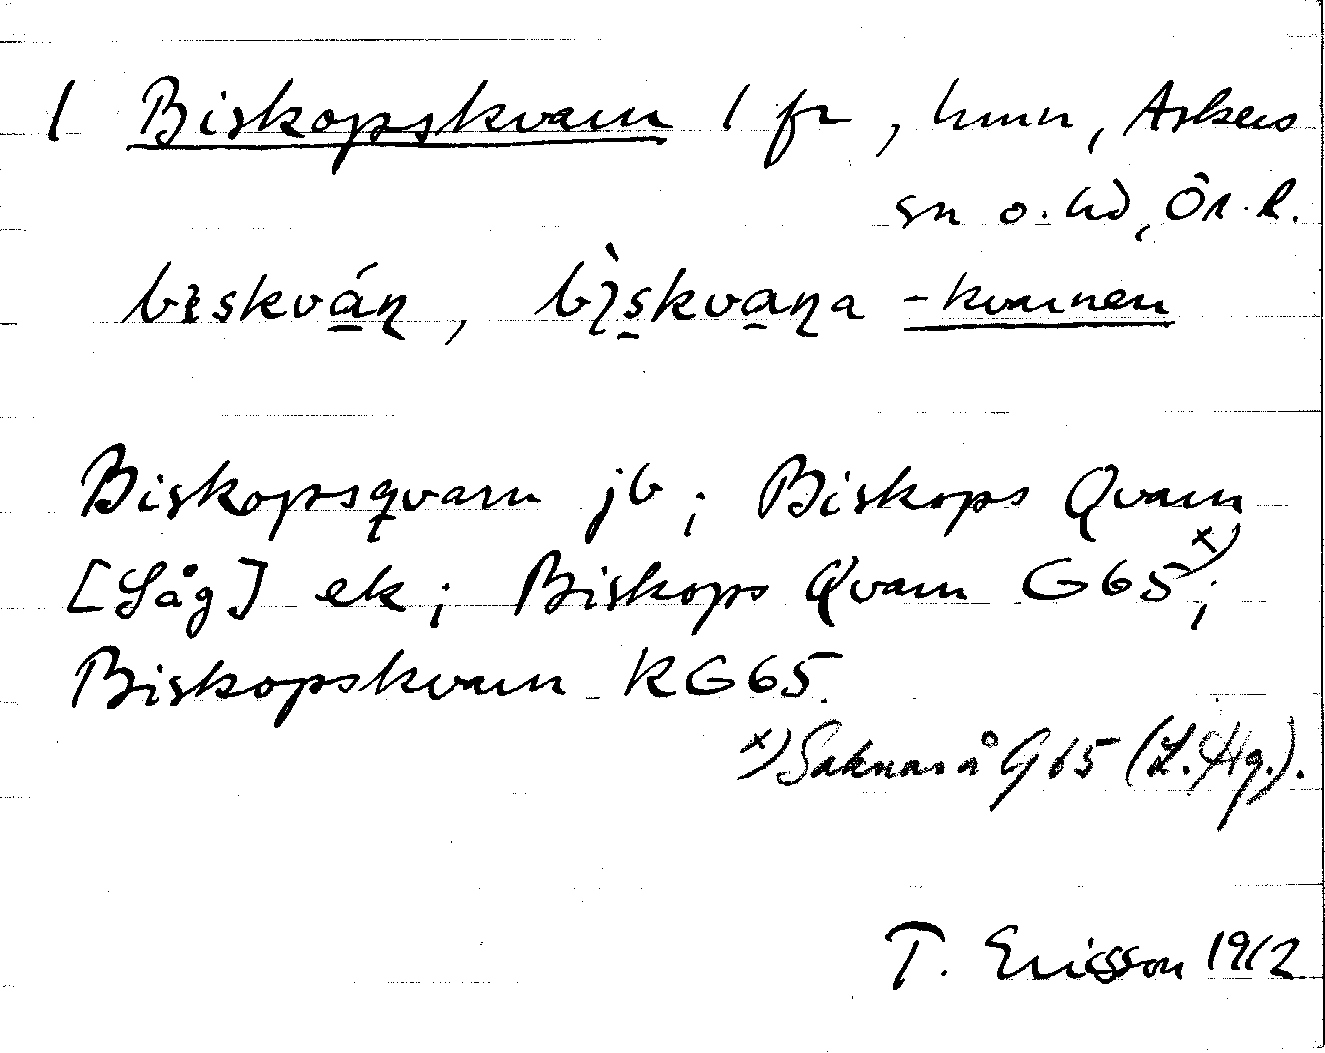 1 Biskopskvarn 1 fr, hmn, Askers
sn o. hd, Ör. l.
bɪskváɳ, bɪ̀skvaɳa -kvarnen
Biskopsqvarn jb; Biskops Qvarn
[Såg] ek; Biskops Qvarn G65 x);
Biskopskvarn RG65.
x) Saknas å G65 (L. Hg.).
T. Ericsson 1912